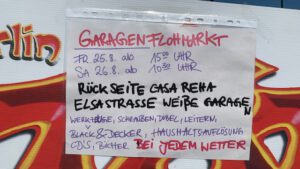 rlin
GARAGENFLOHMARKT
FR 25.8. ab 15:00 UHR
SA 26.8. ab 10:00 UHR
RÜCKSEITE CASA REHA
ELSASTRASSE WEIßE GARAGEN
WERKZEUGE, SCHRAUBEN, DÜBEL, LEITERN,
BLACK & DECKER, HAUSHALTSAUFLÖSUNG
CD'S, BÜCHER BEI JEDEM WETTER